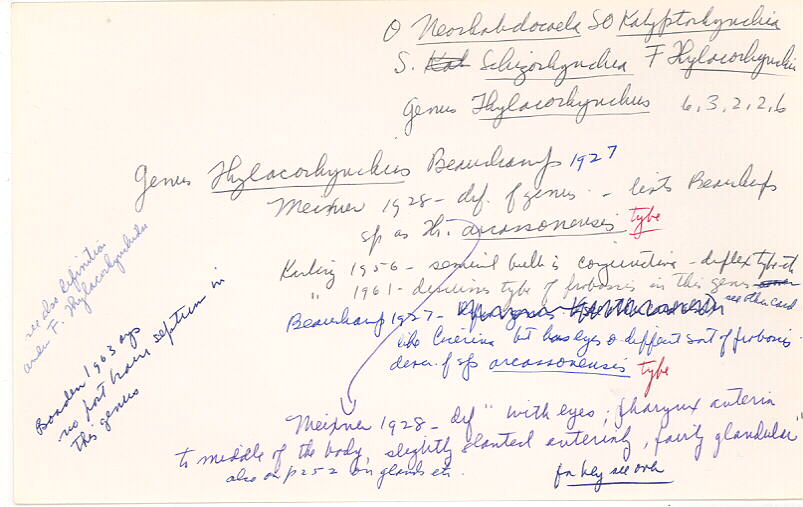 O Neorhabdocoela SO Kalyptorhynchia
S. Kal Schizorhynchia F Thylacorhynchi
Genus Thylacorhynchus 6, 3, 2, 2, 6
Genus Thylacorhynchus Beauchamp 1927
Meixner 1928 - def. of genus - lists Beauchamp
sp as Th. arcassonensis type
Karling 1956 - seminal bulb is conjuncta - duplex type
" 1961 - discusses type of proboscis in this genus see other card
Beauchamp 1927 -
like Cicerina but has eyes & different sort of proboscis -
descr. of sp arcassonensis type
see also definition
under F. Thylacorhynchidae
Boaden 1963 says
no post brain septum in
this genus
Meixner 1928 - def " with eyes; pharynx anterior
to middle of the body, slightly slanted anteriorly, fairly glandular"
also on p 252 on glands etc.
for key see over